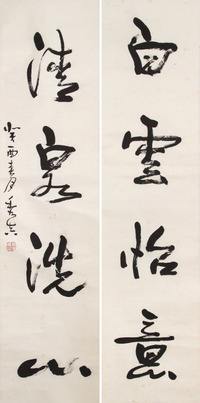 白雲怡意
清泉洗心
癸酉春月